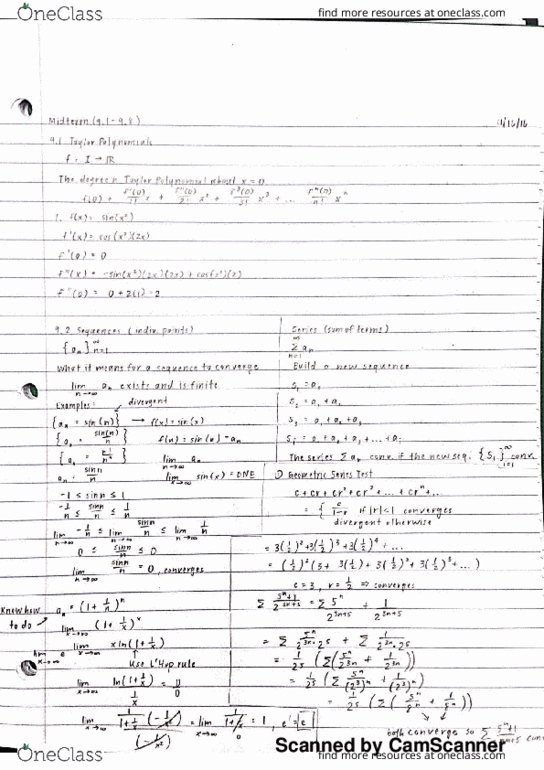 OneClass
find more resources at oneclass.com
Midterm (9.1-9.8)
11/16/16
9.1 Taylor Polynomials
f = I → R
The degree n Taylor Polynomial about x = 0
f(0) + f'(0)/1! x + f''(0)/2! x² + f³(0)/3! x³ + ... fⁿ(0)/n! xⁿ
1. f(x) = sin(x²)
f'(x) = cos(x²)(2x)
f'(0) = 0
f''(x) = -sin(x²)(2x)(2x) + cos(x²)(2)
f''(0) = 0 + 2(1) = 2
9.2 Sequences (indiv. points)
{aₙ}∞ n=1
What it means for a sequence to converge
lim n→∞ aₙ exists and is finite
Examples: divergent
{aₙ = sin(n)} → f(x) = sin(x)
{aₙ = sin(n)/n} f(n) = sin(n) = aₙ
lim n→∞ aₙ
aₙ = sinn/n lim x→∞ sin(x) = DNE
-1 ≤ sinn ≤ 1
-1/n ≤ sinn/n ≤ 1/n
lim n→∞ -1/n ≤ lim n→∞ sinn/n ≤ lim n→∞ 1/n
0 ≤ sinn/n ≤ 0
lim n→∞ sinn/n = 0, converges
Know how to do
aₙ = (1 + 1/n)ⁿ
lim x→∞ (1 + 1/x)ˣ
lim x→∞ e lim x→∞ x ln(1 + 1/x)
Use L'Hop. rule
lim x→∞ ln(1 + 1/x) / 1/x = 0/0
lim x→∞ 1/(1+1/x) (-1/x²) / (-1/x²) = lim x→∞ 1/(1+1/x) = 1, e¹ = e
Series (sum of terms)
∞ Σ aₙ n=1
Build a new sequence
S₁ = a₁
S₂ = a₁ + a₂
S₃ = a₁ + a₂ + a₃
Sᵢ = a₁ + a₂ + a₃ + ... + aᵢ
The series Σ aₙ conv. if the new seq. {Sᵢ}∞ i=1 conv.
① Geometric Series Test
c + cr + cr² + cr³ + ... + crⁿ + ...
= { c/1-r if |r| < 1 converges
divergent otherwise
= 3(1/2)² + 3(1/2)³ + 3(1/2)⁴ + ...
= (1/2)² (3 + 3(1/2) + 3(1/2)² + 3(1/2)³ + ...)
c = 3, r = 1/2 ⇒ converges
Σ 5ⁿ+1/2³ⁿ⁺⁵ = Σ 5ⁿ/2³ⁿ⁺⁵ + 1/2³ⁿ⁺⁵
= Σ 5ⁿ/2³ⁿ·2⁵ + Σ 1/2³ⁿ·2⁵
= 1/2⁵ (Σ(5ⁿ/2³ⁿ + 1/2³ⁿ))
= 1/2⁵ (Σ 5ⁿ/(2³)ⁿ + 1/(2³)ⁿ)
= 1/2⁵ (Σ (5ⁿ/8ⁿ + 1/8ⁿ))
both converge so Σ 5ⁿ+1/2³ⁿ⁺⁵ conv
Scanned by CamScanner
OneClass
find more resources at oneclass.com